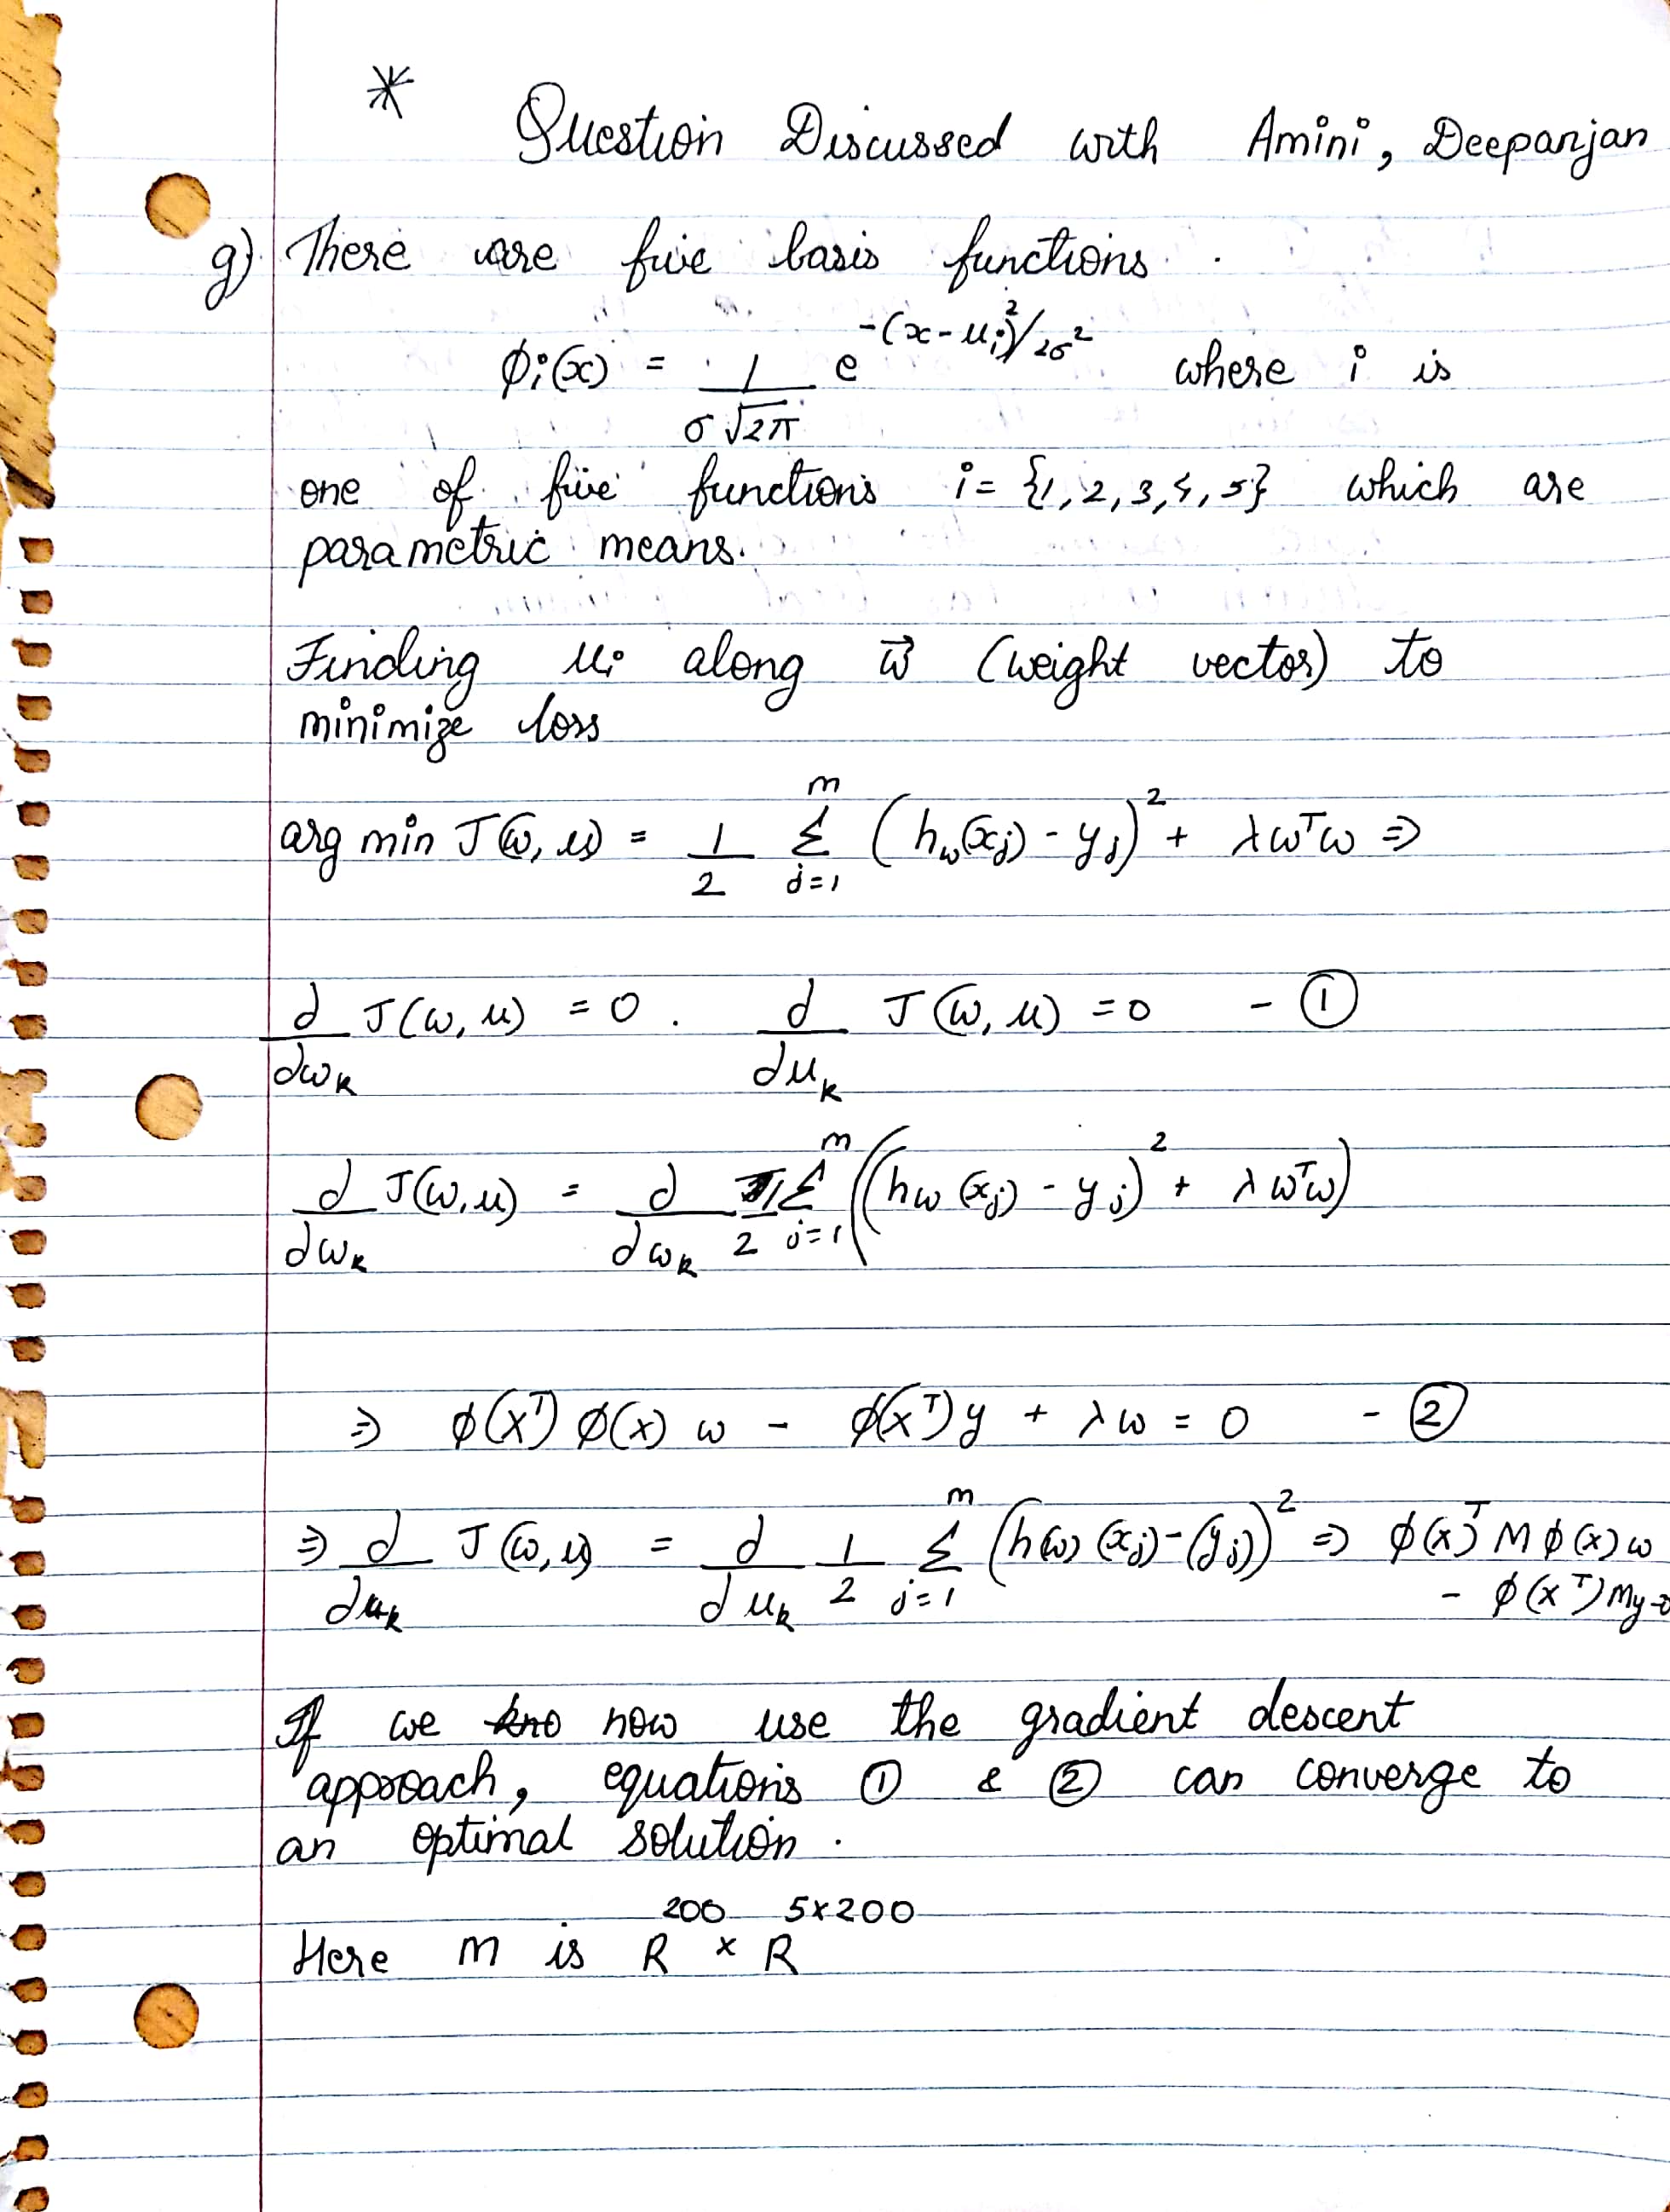 *
Question Discussed with Amini, Deepanjan
g) There are five basis functions.
ϕi(x) = 1/(σ√2π) e^(-(x-μi)²/2σ²) where i is
one of five functions i = {1, 2, 3, 4, 5} which are
parametric means.
Finding μi along w⃗ (weight vector) to
minimize loss
arg min J(ω, μ) = 1/2 Σ_{j=1}^{m} (hω(xj) - yj)² + λωᵀω ⇒
d/dωk J(ω, μ) = 0 . d/dμk J(ω, μ) = 0 - ①
d/dωk J(ω, μ) = d/dωk 1/2 Σ_{j=1}^{m} ((hω(xj) - yj)² + λωᵀω)
⇒ ϕ(xᵀ) ϕ(x) ω - ϕ(xᵀ)y + λω = 0 - ②
⇒ d/dμk J(ω, μ) = d/dμk 1/2 Σ_{j=1}^{m} (h(ω)(xj) - (yj))² ⇒ ϕ(x)ᵀ M ϕ(x) ω
- ϕ(xᵀ) My = 0
If we kno now use the gradient descent
approach, equations ① & ② can converge to
an optimal solution.
Here m is R^200 × R^5×200